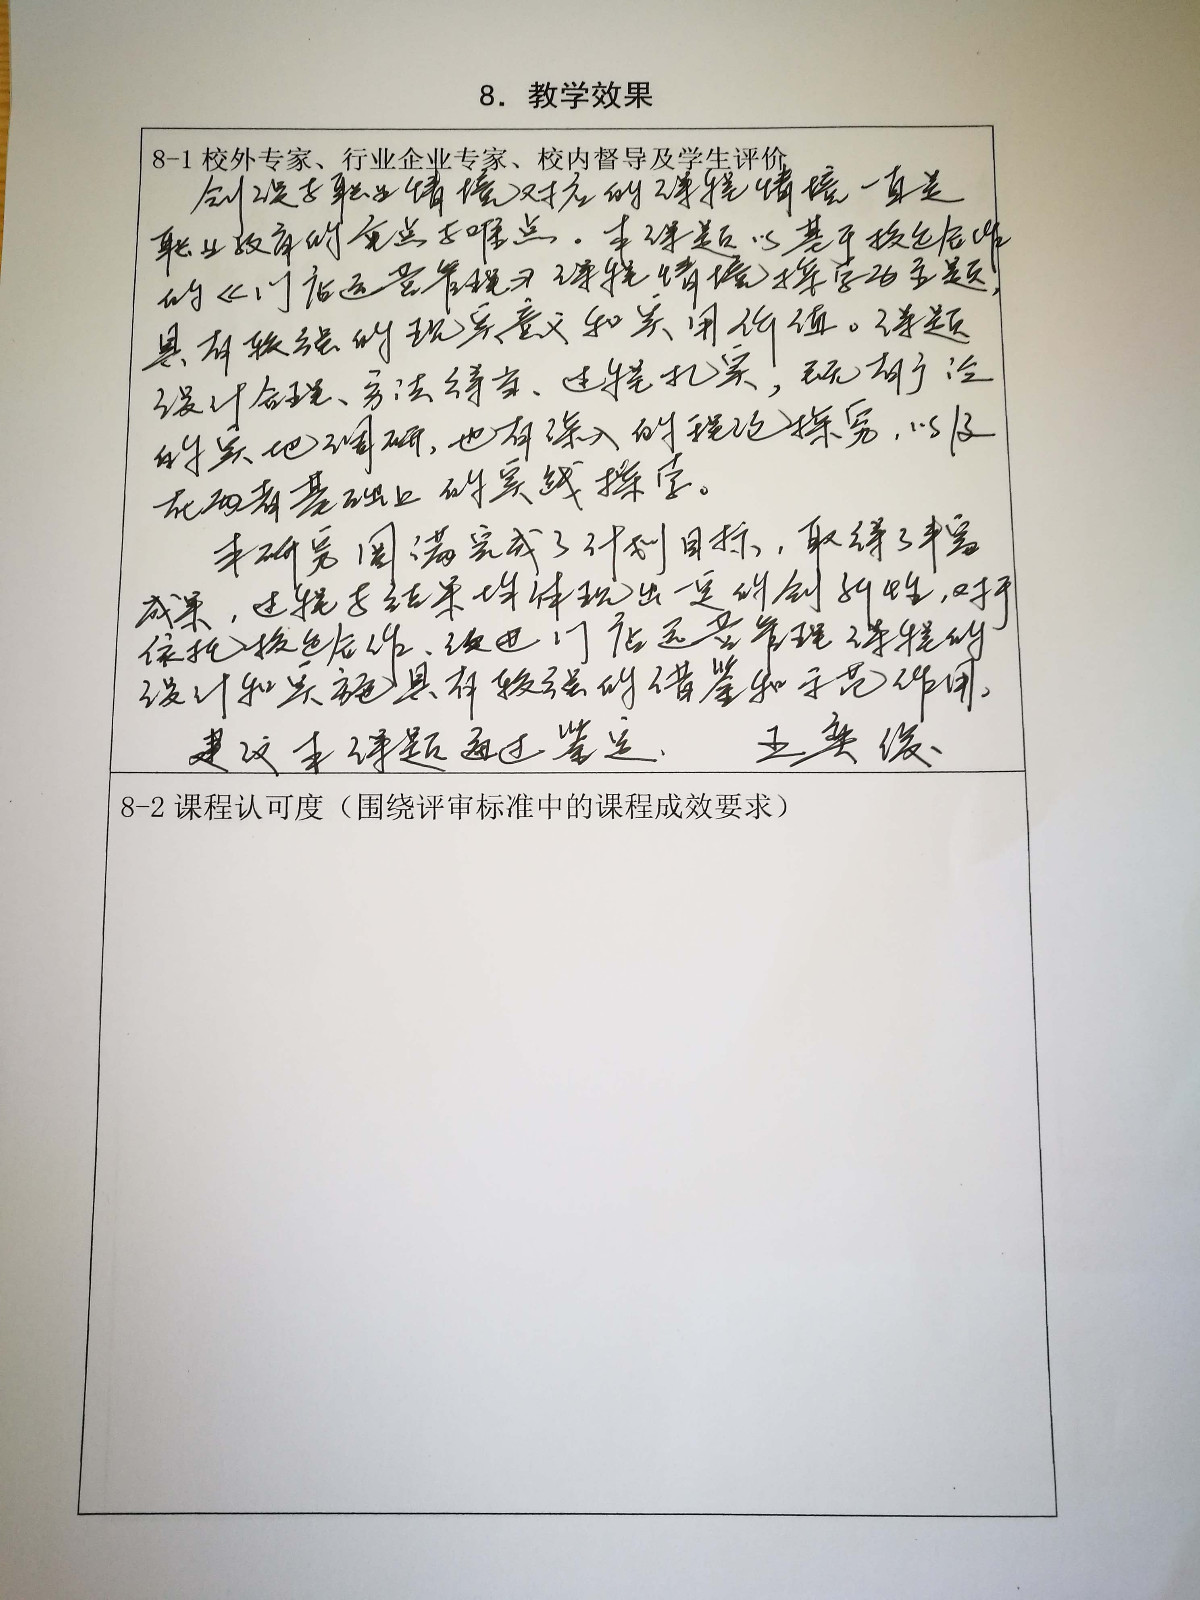 8. 教学效果
8-1 校外专家、行业企业专家、校内督导及学生评价
创设与职业情境对应的课程情境一直是
职业教育的重点与难点。本课题以基于校企合作
的《门店运营管理》课程情境探索为主题，
具有较强的现实意义和实用价值。课题
设计合理、方法得当、过程扎实，既有广泛
的实地调研，也有深入的理论探究，以及
在两者基础上的实践探索。
本研究圆满完成了计划目标，取得了丰富
成果，过程与结果均体现出一定的创新性，对于
依托校企合作、改进门店运营管理课程的
设计和实施具有较强的借鉴和示范作用。
建议本课题通过鉴定。 王奕俊
8-2 课程认可度（围绕评审标准中的课程成效要求）